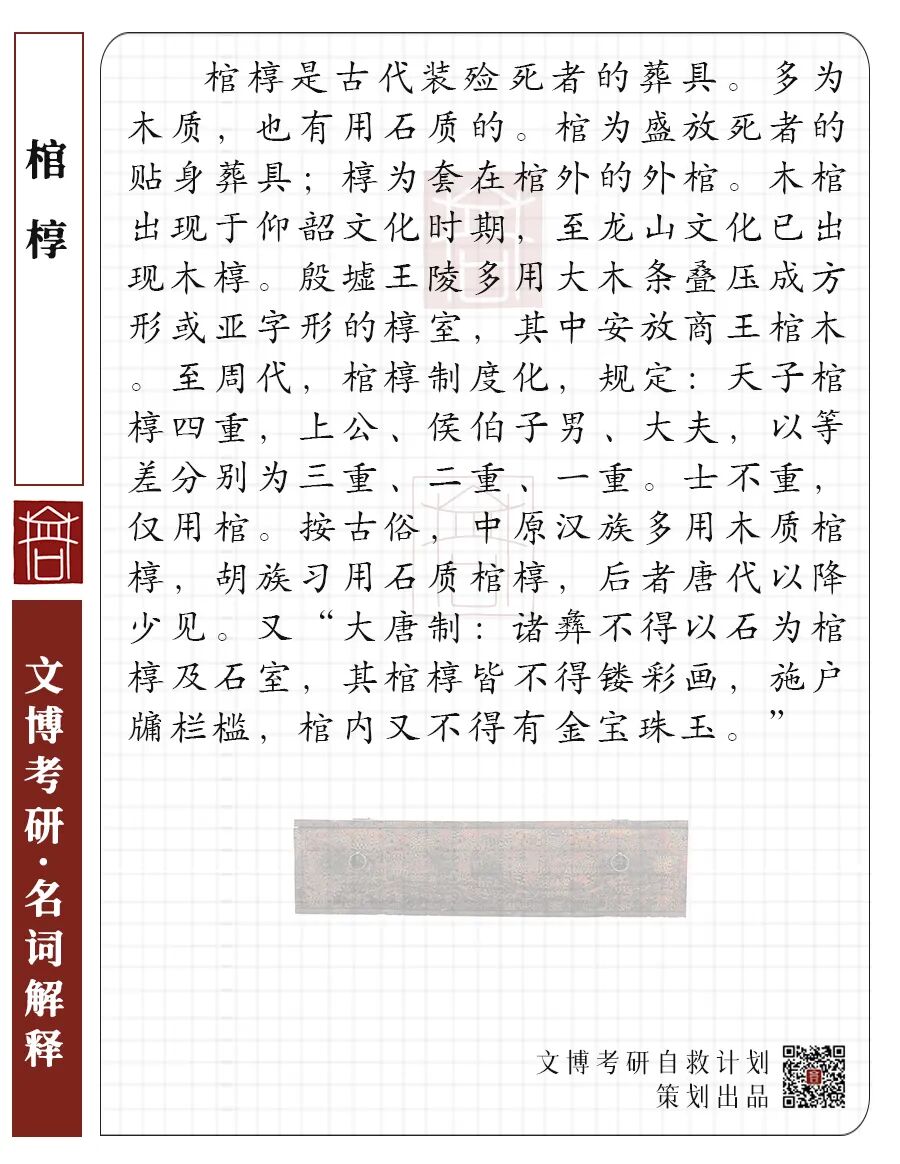 棺椁
文博考研·名词解释
棺椁是古代装殓死者的葬具。多为
木质，也有用石质的。棺为盛放死者的
贴身葬具；椁为套在棺外的外棺。木棺
出现于仰韶文化时期，至龙山文化已出
现木椁。殷墟王陵多用大木条叠压成方
形或亚字形的椁室，其中安放商王棺木
。至周代，棺椁制度化，规定：天子棺
椁四重，上公、侯伯子男、大夫，以等
差分别为三重、二重、一重。士不重，
仅用棺。按古俗，中原汉族多用木质棺
椁，胡族习用石质棺椁，后者唐代以降
少见。又“大唐制：诸彝不得以石为棺
椁及石室，其棺椁皆不得镂彩画，施户
牖栏槛，棺内又不得有金宝珠玉。”
文博考研自救计划
策划出品